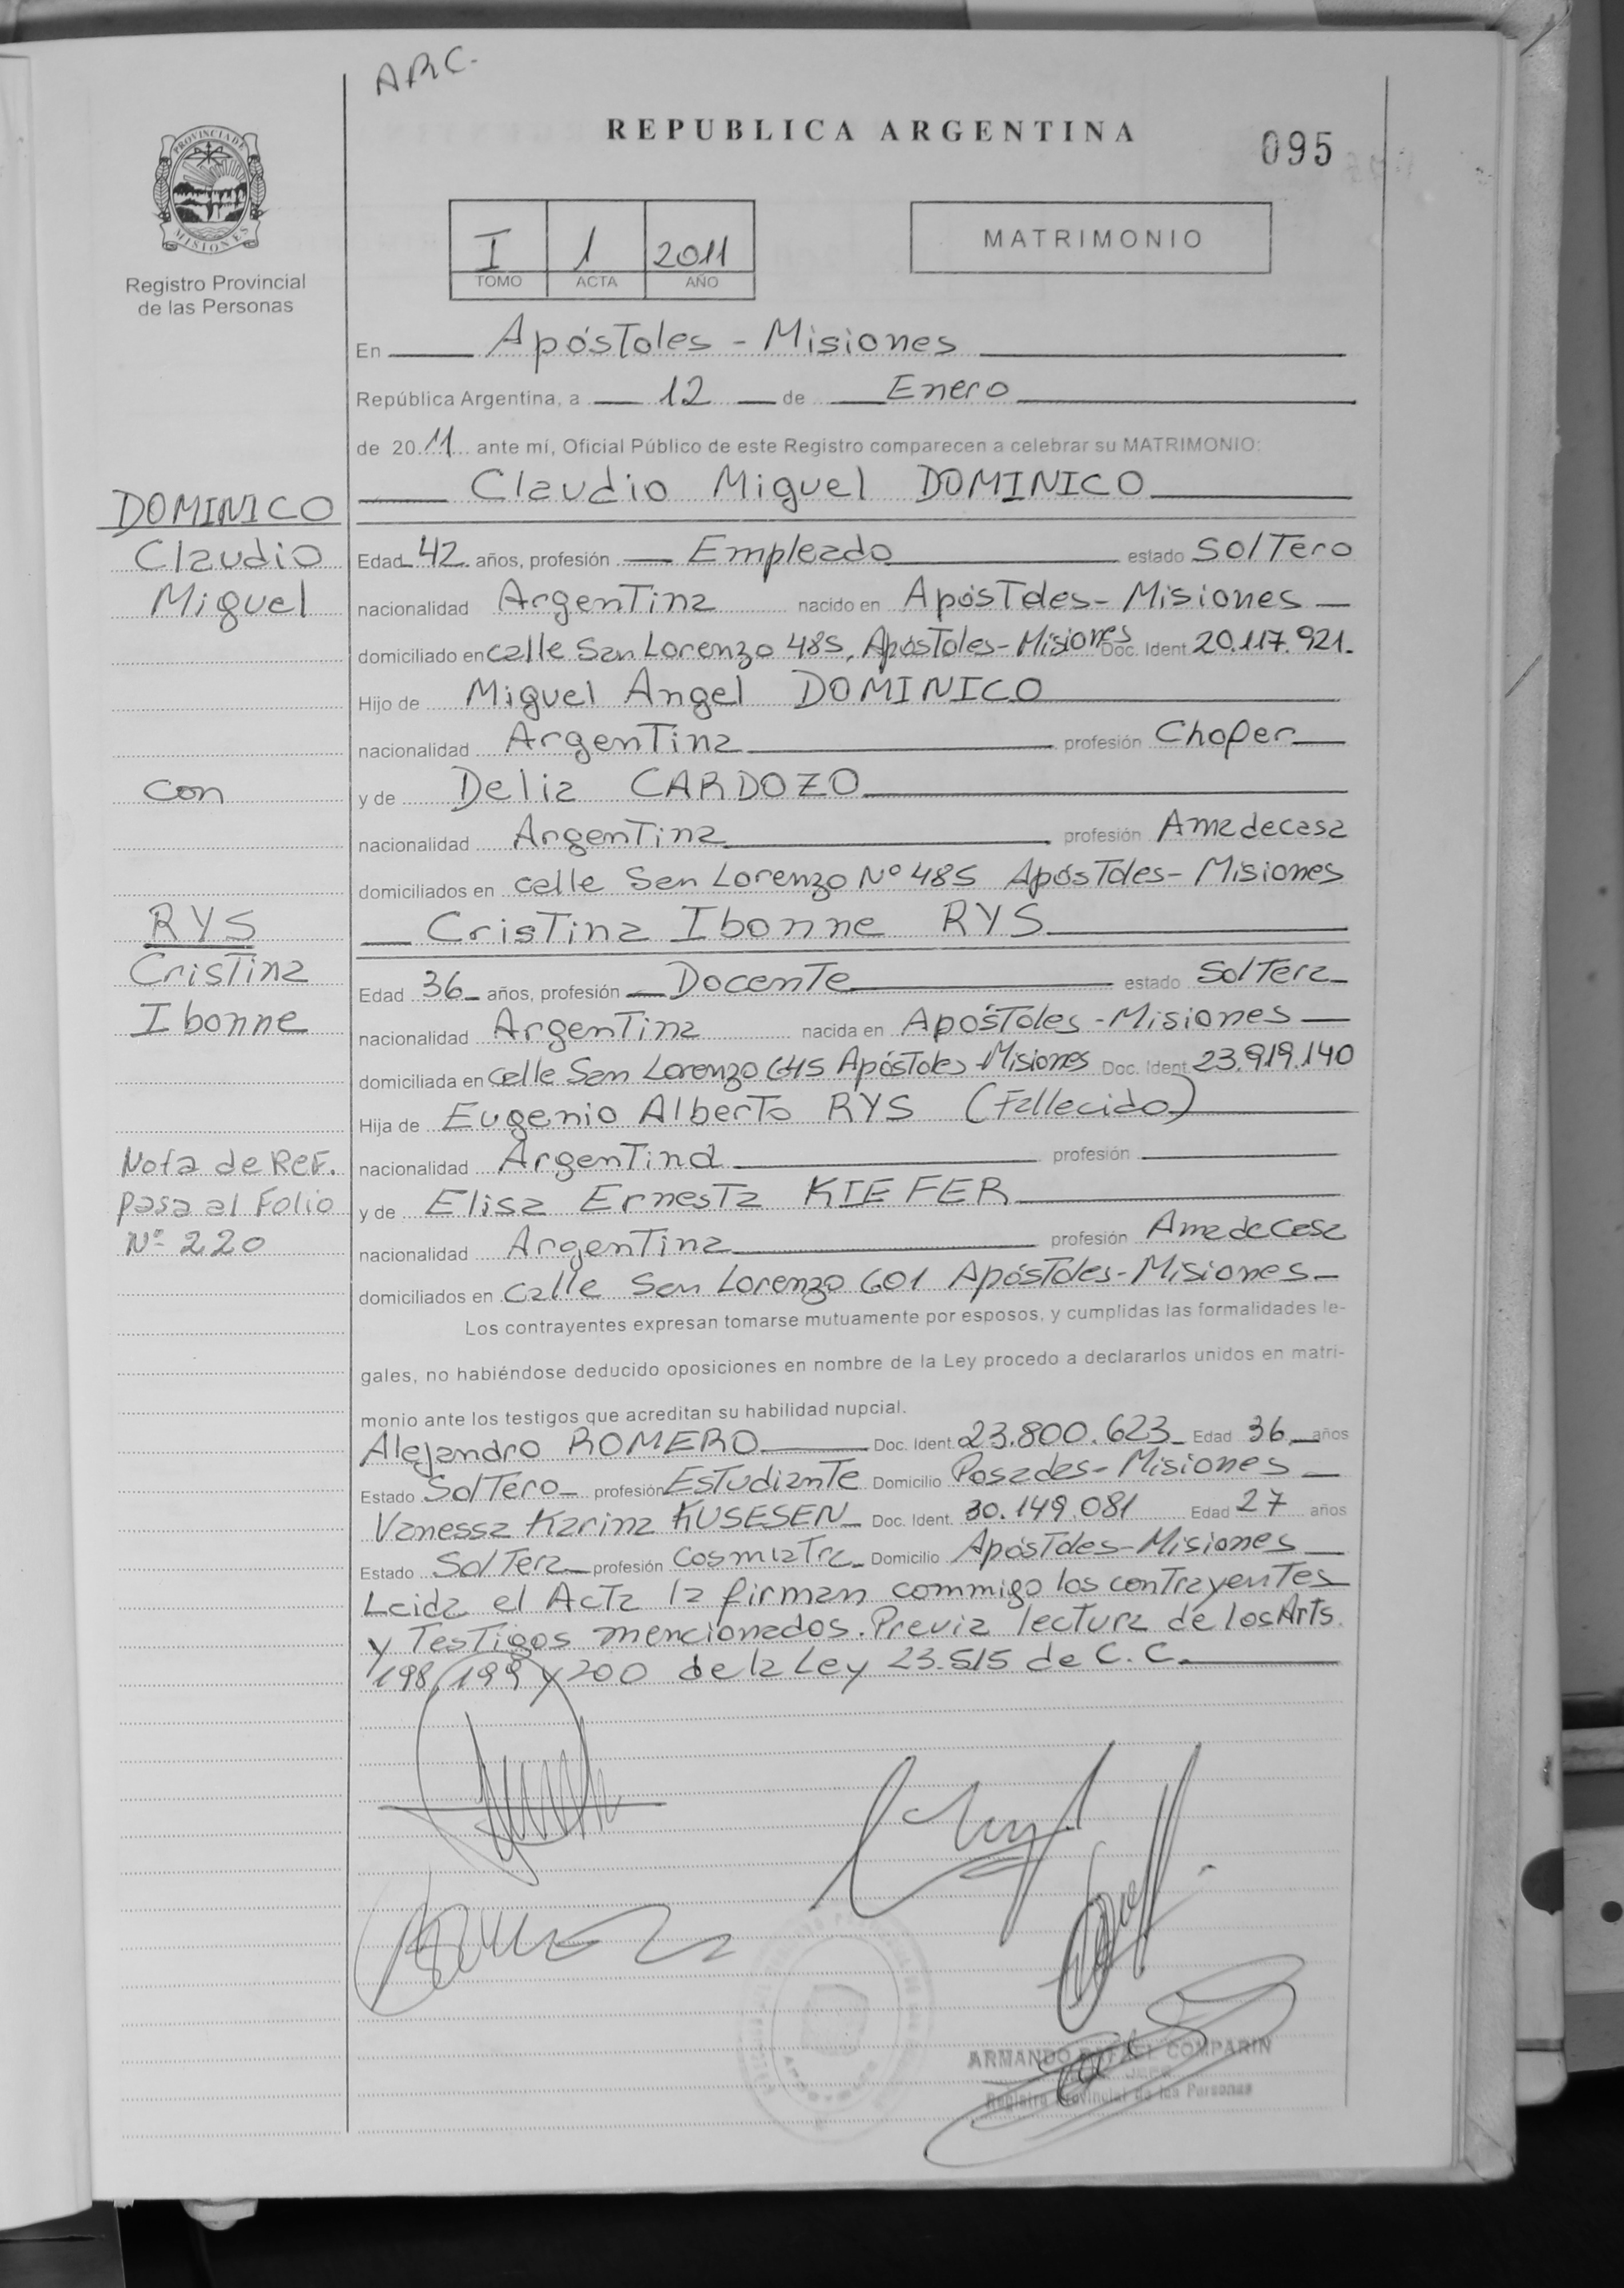 ARC.
REPUBLICA ARGENTINA
095
PROVINCIA DE
MISIONES
Registro Provincial
de las Personas
I 1 2011
TOMO ACTA AÑO
MATRIMONIO
En Apóstoles - Misiones
República Argentina, a 12 de Enero
de 2011 ante mí, Oficial Público de este Registro comparecen a celebrar su MATRIMONIO:
Claudio Miguel DOMINICO
DOMINICO
Claudio
Miguel
Edad 42 años, profesión Empleado estado Soltero
nacionalidad Argentina nacido en Apóstoles - Misiones
domiciliado en calle San Lorenzo 485, Apóstoles - Misiones Doc. Ident 20.117.921.
Hijo de Miguel Angel DOMINICO
nacionalidad Argentina profesión Chofer
con
y de Delia CARDOZO
nacionalidad Argentina profesión Amadecasa
domiciliados en calle San Lorenzo Nº 485 Apóstoles - Misiones
RYS
Cristina
Ibonne
Cristina Ibonne RYS
Edad 36 años, profesión Docente estado Soltera
nacionalidad Argentina nacida en Apóstoles - Misiones
domiciliada en calle San Lorenzo 645 Apóstoles - Misiones Doc. Ident 23.919.140
Hija de Eugenio Alberto RYS (Fallecido)
nacionalidad Argentina profesión
Nota de Ref.
pasa al Folio
Nº 220
y de Elisa Ernesta KIEFER
nacionalidad Argentina profesión Amadecasa
domiciliados en calle San Lorenzo 601 Apóstoles - Misiones
Los contrayentes expresan tomarse mutuamente por esposos, y cumplidas las formalidades le-
gales, no habiéndose deducido oposiciones en nombre de la Ley procedo a declararlos unidos en matri-
monio ante los testigos que acreditan su habilidad nupcial.
Alejandro ROMERO Doc. Ident. 23.800.623 Edad 36 años
Estado Soltero profesión Estudiante Domicilio Posadas - Misiones
Vanessa Karina KUSESEN Doc. Ident. 30.149.081 Edad 27 años
Estado Soltera profesión Cosmiatra Domicilio Apóstoles - Misiones
Leida el Acta la firman commigo los contrayentes
y Testigos mencionados. Previa lectura de los Arts.
198, 199 y 200 de la Ley 23.515 de C.C.
ARMANDO RAFAEL COMPARIN
Registro Provincial de las Personas